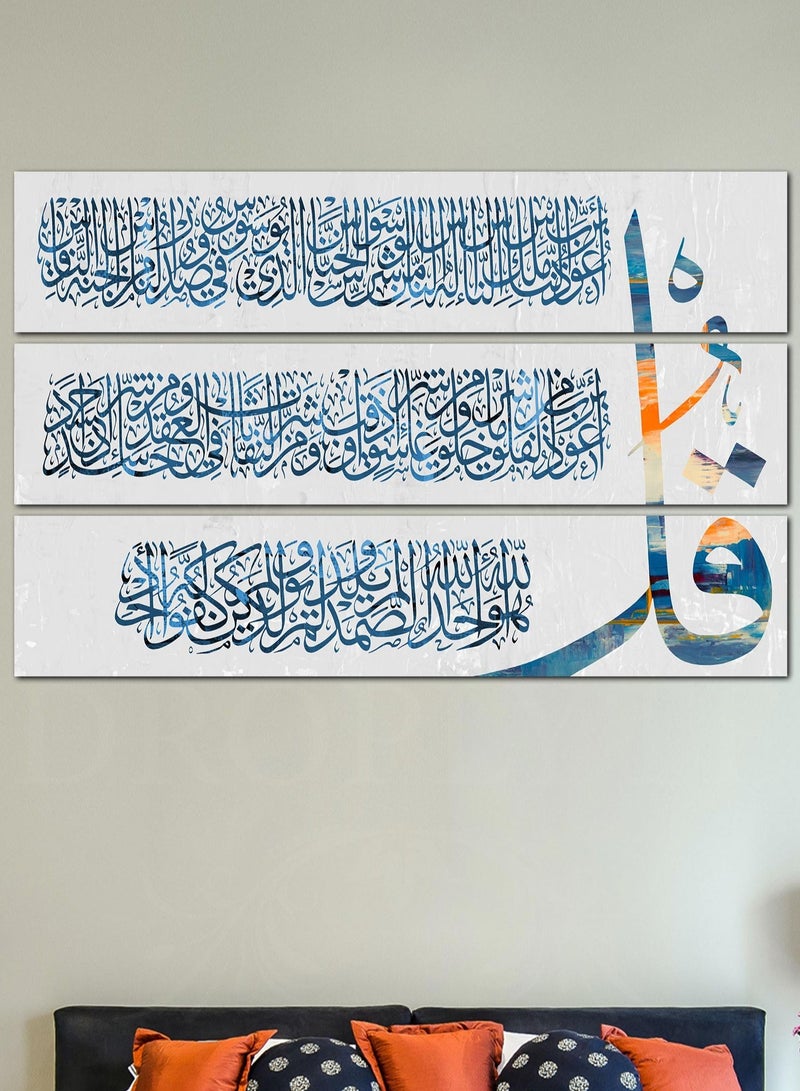 قُلْ
أعوذ برب الناس ملك الناس إله الناس من شر الوسواس الخناس الذي يوسوس في صدور الناس من الجنة والناس
أعوذ برب الفلق من شر ما خلق ومن شر غاسق إذا وقب ومن شر النفاثات في العقد ومن شر حاسد إذا حسد
هو الله أحد الله الصمد لم يلد ولم يولد ولم يكن له كفوا أحد